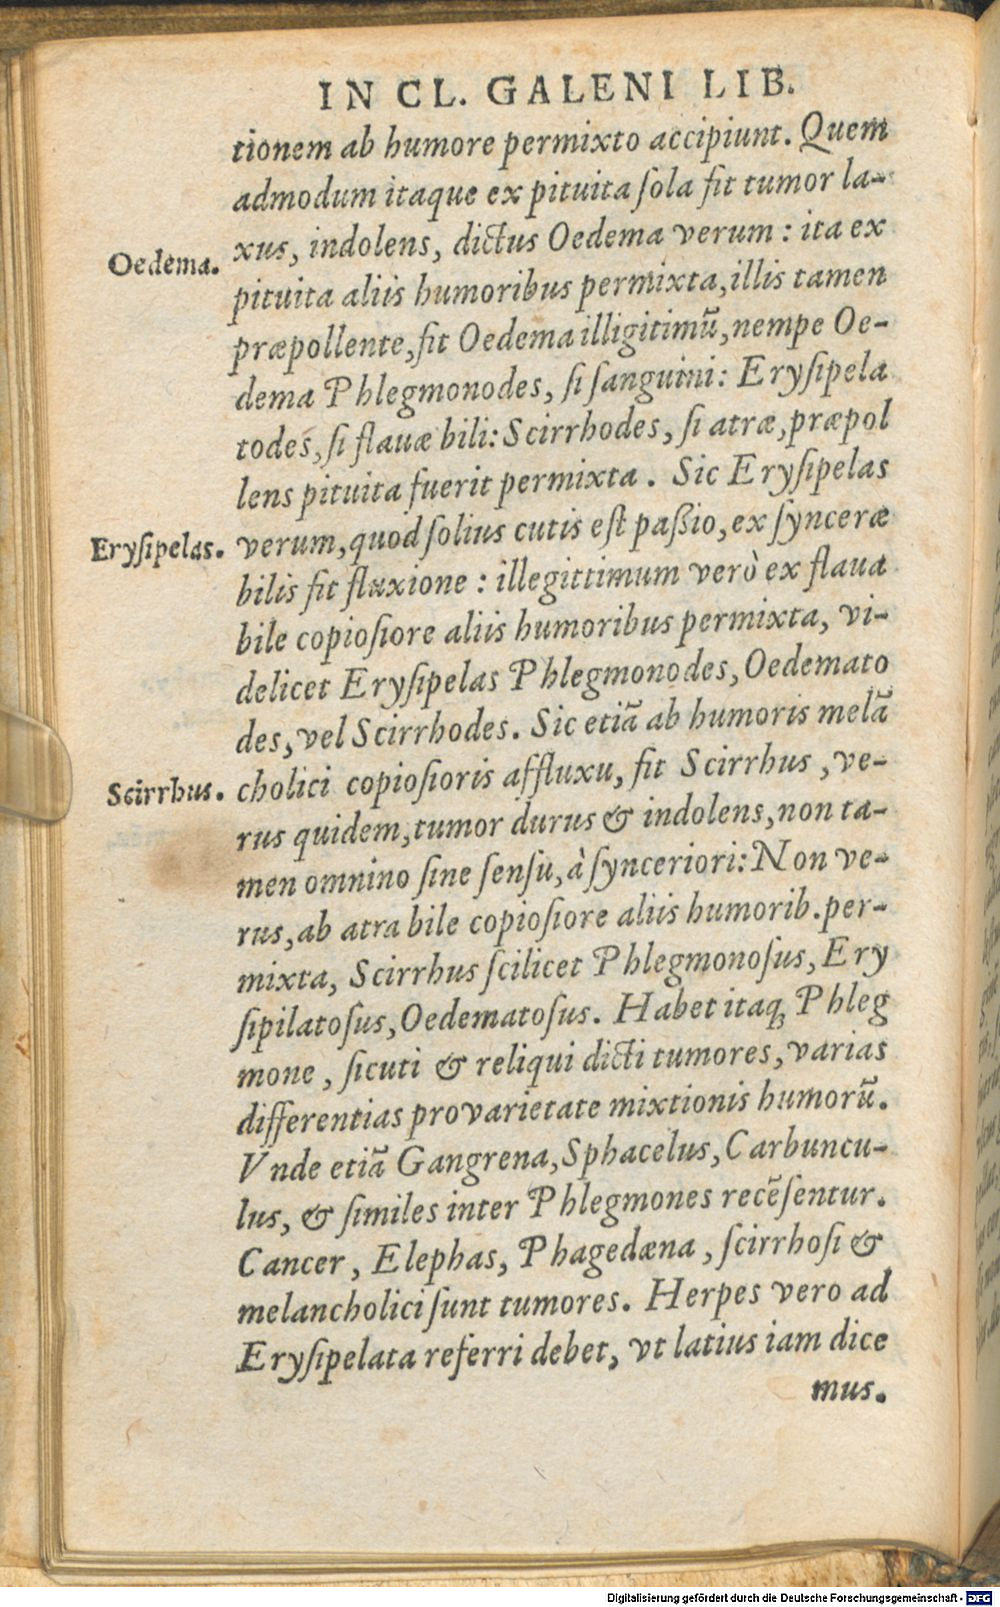 IN CL. GALENI LIB.
tionem ab humore permixto accipiunt. Quem
admodum itaque ex pituita ſola fit tumor la-
Oedema.
xus, indolens, dictus Oedema verum: ita ex
pituita aliis humoribus permixta, illis tamen
præpollente, fit Oedema illigitimũ, nempe Oe-
dema Phlegmonodes, ſi ſanguini: Eryſipela
todes, ſi flauæ bili: Scirrhodes, ſi atræ, præpol
lens pituita fuerit permixta. Sic Eryſipelas
Eryſipelas.
verum, quod ſolius cutis eſt paßio, ex ſynceræ
bilis fit fluxione: illegittimum verò ex flaua
bile copioſiore aliis humoribus permixta, vi-
delicet Eryſipelas Phlegmonodes, Oedemato
des, vel Scirrhodes. Sic etiã ab humoris melã
Scirrhus.
cholici copioſioris affluxu, fit Scirrhus, ve-
rus quidem, tumor durus & indolens, non ta-
men omnino ſine ſenſu, à ſynceriori: Non ve-
rus, ab atra bile copioſiore aliis humorib. per-
mixta, Scirrhus ſcilicet Phlegmonoſus, Ery
ſipilatoſus, Oedematoſus. Habet itaq; Phleg
mone, ſicuti & reliqui dicti tumores, varias
differentias pro varietate mixtionis humorũ.
Vnde etiã Gangrena, Sphacelus, Carbuncu-
lus, & ſimiles inter Phlegmones recẽſentur.
Cancer, Elephas, Phagedæna, ſcirrhoſi &
melancholici ſunt tumores. Herpes vero ad
Eryſipelata referri debet, vt latius iam dice
mus.
Digitalisierung gefördert durch die Deutsche Forschungsgemeinschaft - DFG